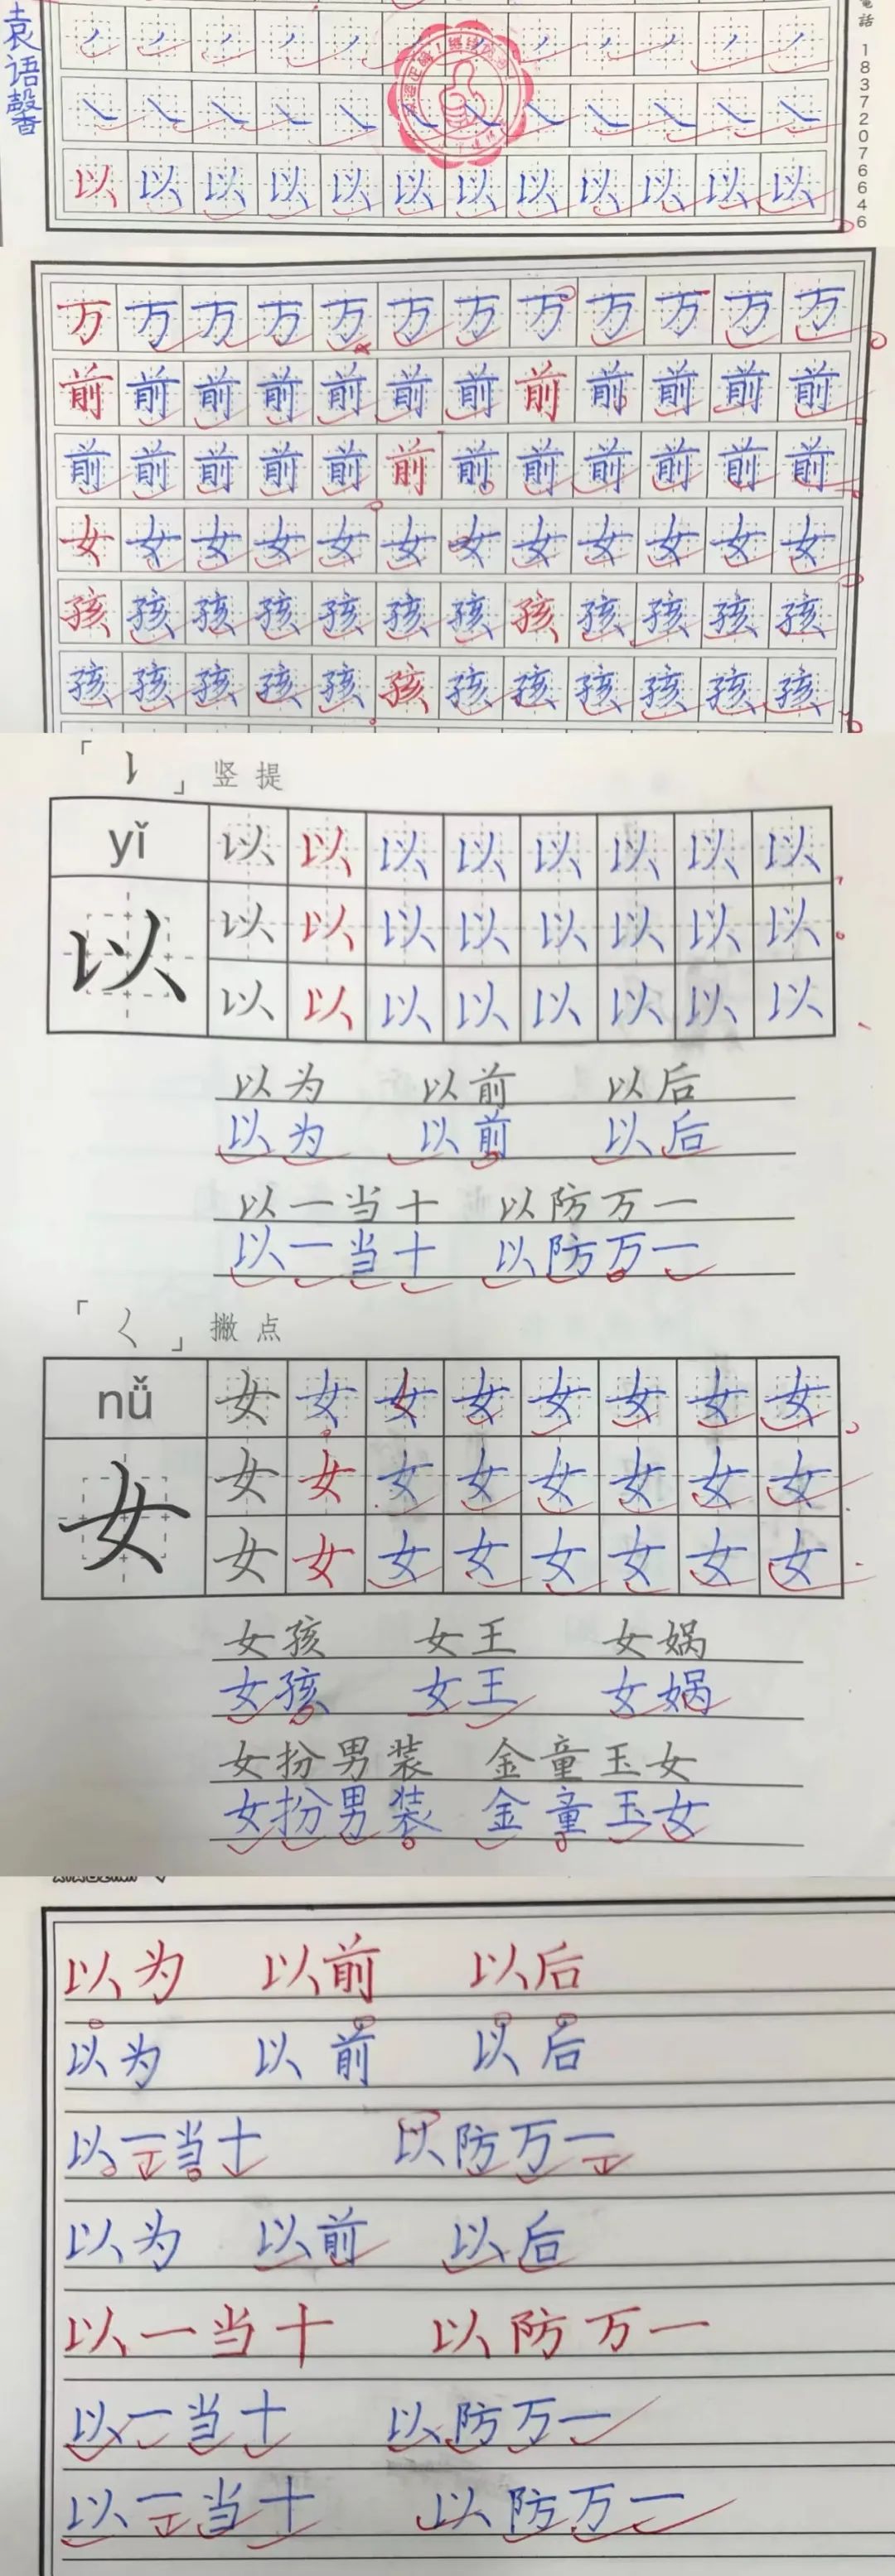 袁语馨
電話 18372076646
丿 丿 丿 丿 丿 丿 丿 丿 丿 丿
以 以 以 以 以 以 以 以 以 以 以 以
万 万 万 万 万 万 万 万 万 万 万 万
前 前 前 前 前 前 前 前 前 前 前 前
前 前 前 前 前 前 前 前 前 前 前 前
女 女 女 女 女 女 女 女 女 女 女 女
孩 孩 孩 孩 孩 孩 孩 孩 孩 孩 孩 孩
孩 孩 孩 孩 孩 孩 孩 孩 孩 孩 孩 孩
「㇙」竖提
yǐ 以 以 以 以 以 以 以 以
以 以 以 以 以 以 以 以 以
以 以 以 以 以 以 以 以
以为 以前 以后
以为 以前 以后
以一当十 以防万一
以一当十 以防万一
「𡿨」撇点
nǚ 女 女 女 女 女 女 女 女
女 女 女 女 女 女 女 女 女
女 女 女 女 女 女 女 女
女孩 女王 女娲
女孩 女王 女娲
女扮男装 金童玉女
女扮男装 金童玉女
以为 以前 以后
以为 以前 以后
以一当十 以防万一
以为 以前 以后
以一当十 以防万一
以一当十 以防万一
以一当十 以防万一